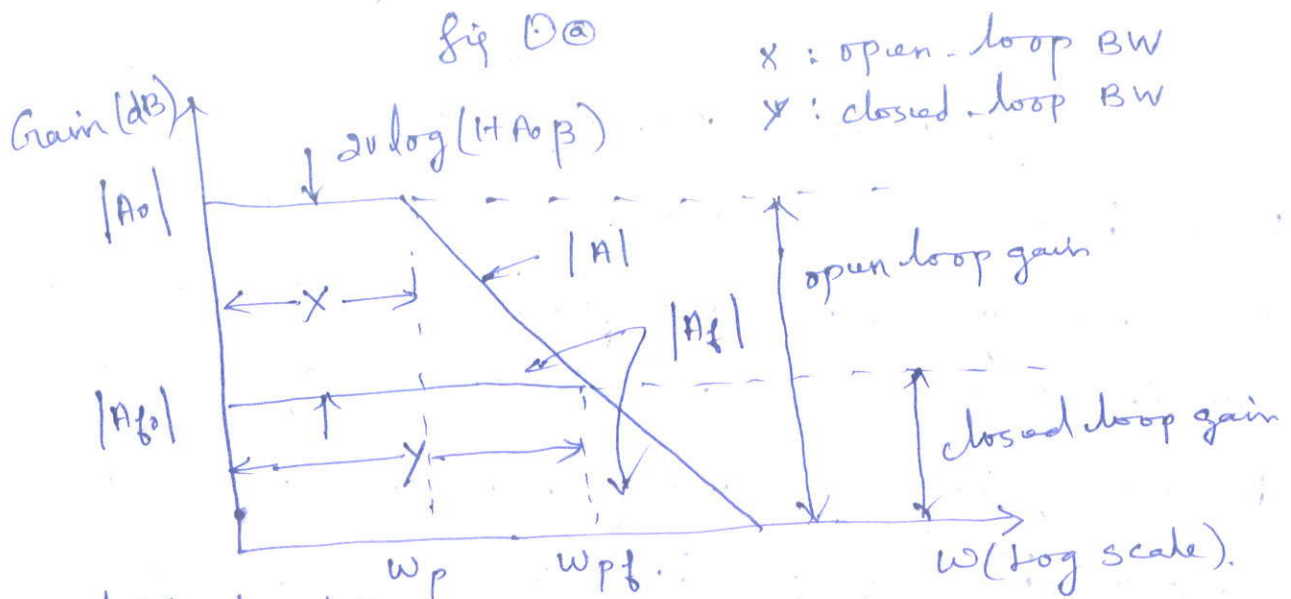 fig ① ⓐ
x : open-loop BW
y : closed-loop BW
Gain (dB)
20 log (1+A₀β)
|A₀|
|A|
open loop gain
X
|Af|
|Af₀|
closed loop gain
y
ωp
ωpf.
ω(Log scale).